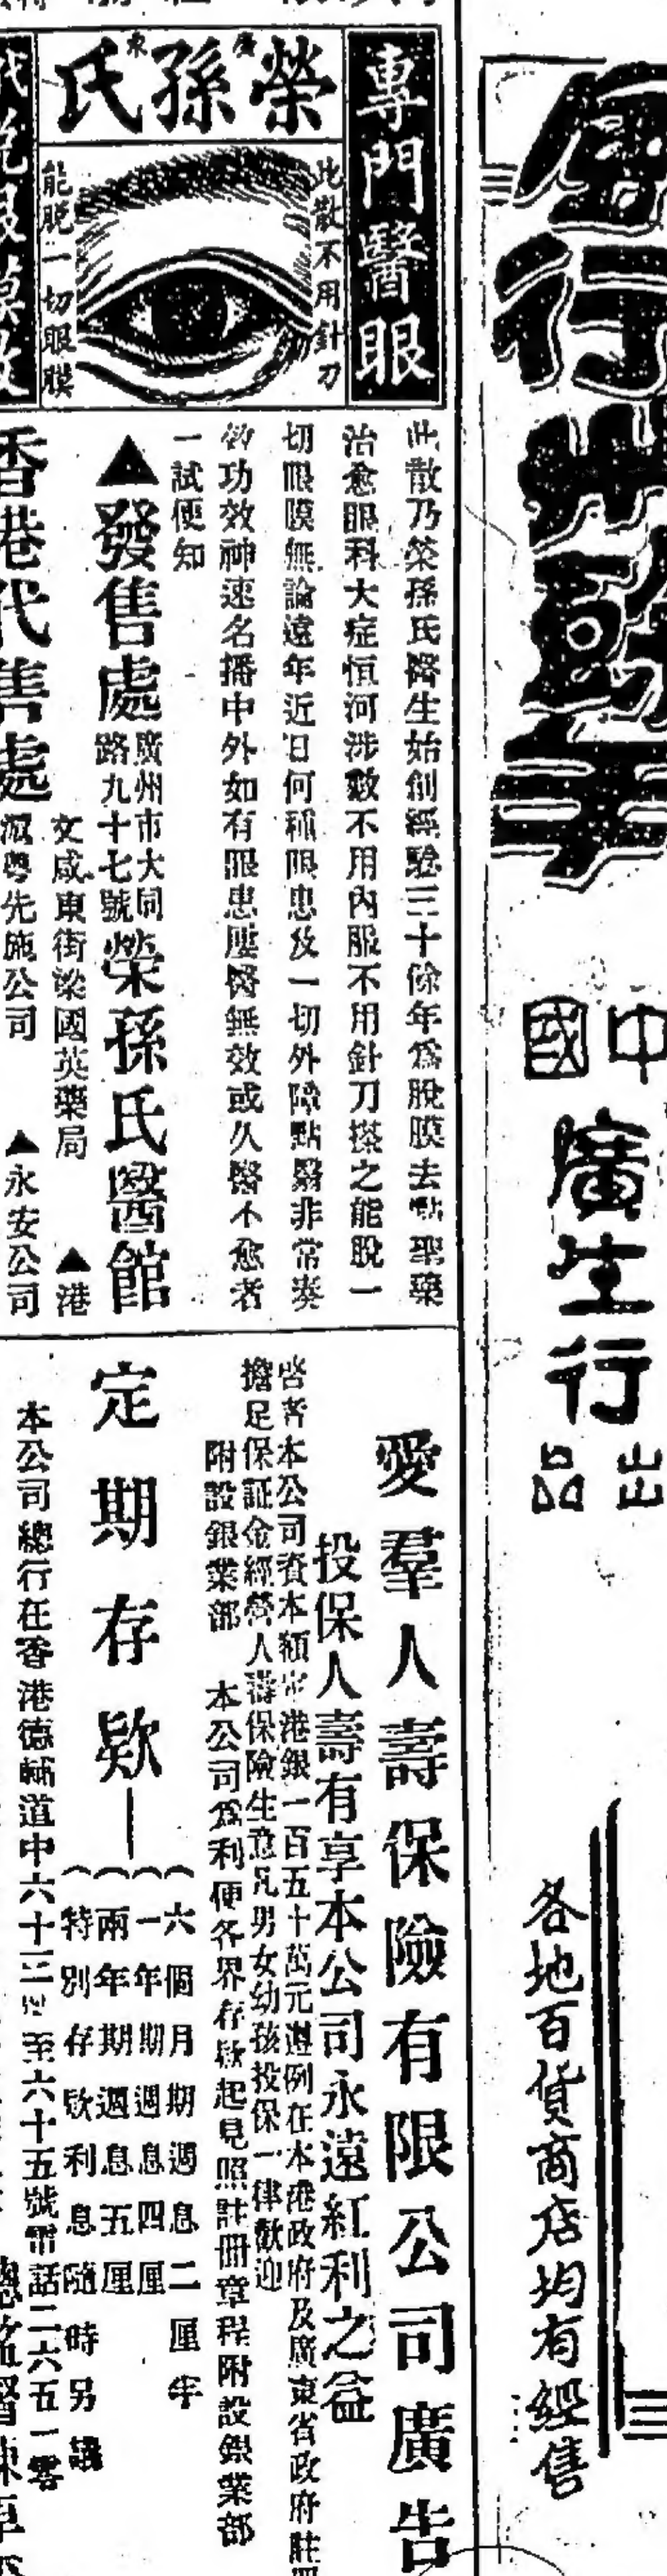 風行卅餘年
中國
廣生行
出品
各地百貨商店均有經售
專門醫眼
廣東
榮孫氏
此散不用針刀
能脫一切眼膜
此散乃榮孫氏醫生始創經驗三十餘年為脫膜去點聖藥
治愈眼科大症恒河沙數不用內服不用針刀搽之能脫一
切眼膜無論遠年近日何種眼患及一切外障點翳非常奏
效功效神速名播中外如有眼患屢醫無效或久醫不愈者
一試便知
▲發售處
廣州市大同
路九十七號
榮孫氏醫館
香港代售處
文咸東街梁國英藥局
▲港
粵先施公司
▲永安公司
愛羣人壽保險有限公司廣告
投保人壽有享本公司永遠紅利之益
啓者本公司資本額定港銀一百五十萬元遵例在本港政府及廣東省政府註
擔足保証金經營人壽保險生意凡男女幼孩投保一律歡迎
附設銀業部 本公司為利便各界存欵起見照註冊章程附設銀業部
定期存欵
六個月期週息二厘半
一年期週息四厘
兩年期週息五厘
特別存欵利息隨時另議
本公司總行在香港德輔道中六十三號至六十五號電話二六五一零